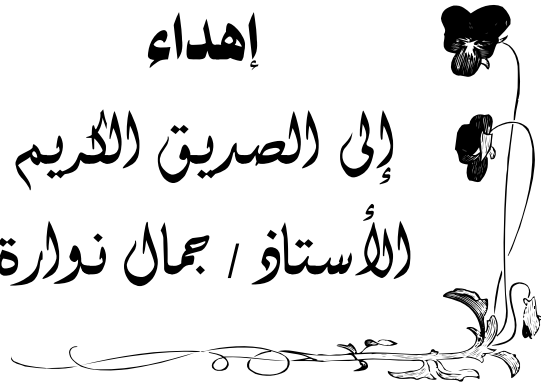 إهداء
إلى الصديق الكريم
الأستاذ / جمال نوارة